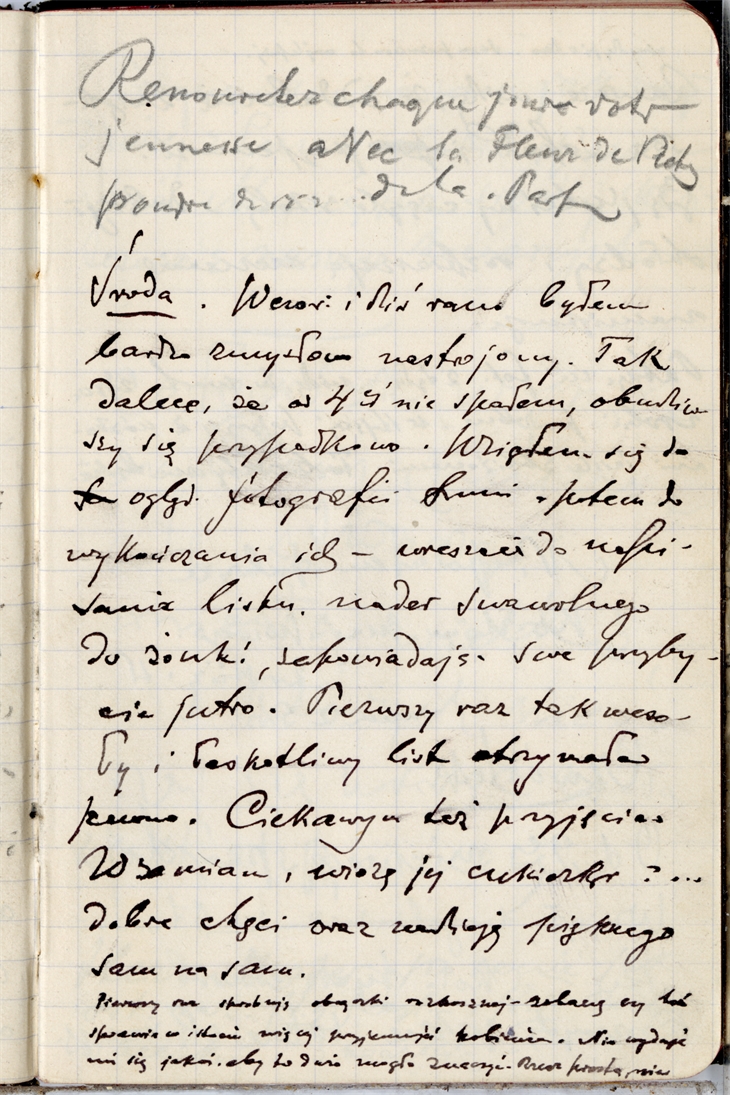 Renouvelez chaque jour votr
jeunesse avec la Fleur de Vichy
poudre de riz .. de la . Parf
Środa . Wczor: i dziś rano byłem
bardzo zmysłowo nastrojony. Tak
dalece, że od 4 ej nie spałem, obudziw
szy się przypadkowo. Wziąłem się do
ogląd. fotografii potem do
wykończania ich – wreszcie do napi-
sania listu. nader swawolnego
do żonki, zapowiadają. swe przyby-
cie jutro. Pierwszy raz tak weso-
ły i łaskotliwy list otrzymała
pewno. Ciekawym też przyjęcia.
Wzamian, wiozę jej cukierków ?...
dobre chęci oraz nadzieję pięknego
sam na sam.
Pierwszy raz spróbuję rozkosznej – zobaczę czy też
sprawia w istocie więcej przyjemności kobiecie. Nie wydaje
mi się jakoś, aby to dużo mogło znaczyć. Rzecz prosta, nie